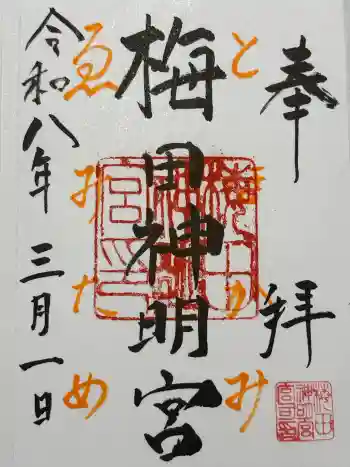 奉拝
とほかみ
梅田神明宮
ゑみため
令和八年三月一日